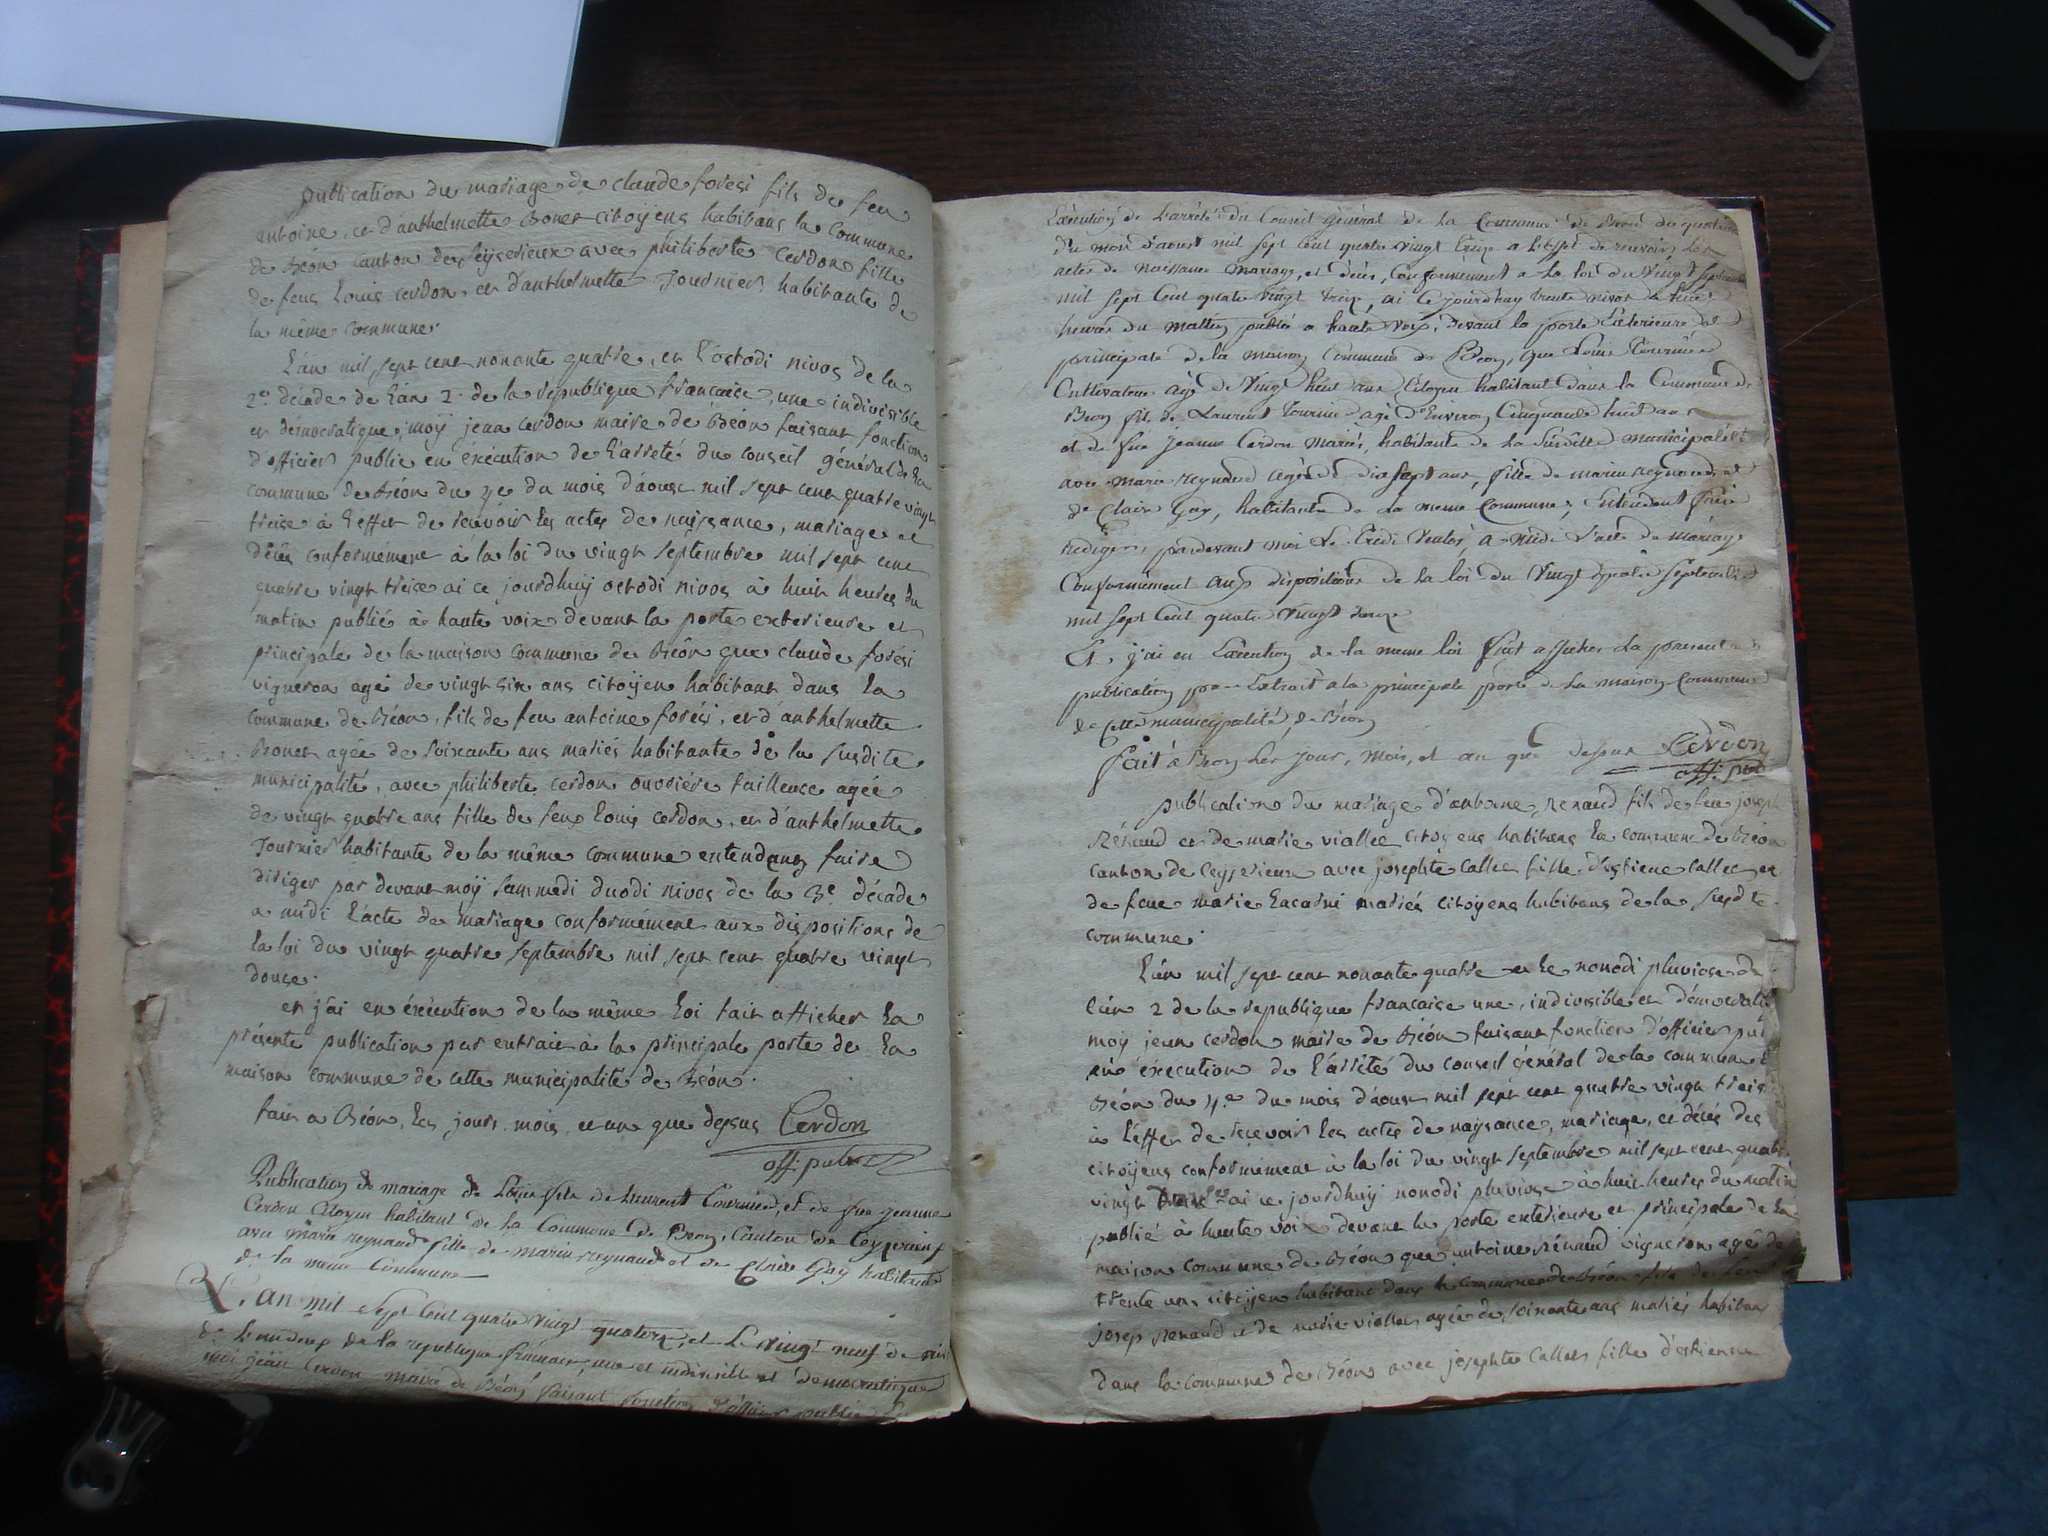 publication du mariage de claude foresi fils de feu
antoine, et d'anthelmette Bonet citoÿens habitans la Commune
de Béon canton de Seÿserieux avec philiberte Cerdon fille
de feus Louis cerdon, et d'anthelmette Tournier habitante de
la même commune.
L'an mil sept cent nonante quatre, et l'octodi nivos de la
2e. décade de l'an 2. de la république française, une indivisible
et démocratique, moÿ jean cerdon maire de Béon faisant fonction
d'officier public en éxécution de l'arreté du conseil général de la
commune de Béon du 4e du mois d'aoust mil sept cent quatre vingt
treise à l'effet de reuvoir les actes de naissance, mariage et
décés conformément à la loi du vingt septembre mil sept cent
quatre vingt treise ai ce jourdhuÿ octodi nivos à huit heures du
matin publié à haute voix devant la porte exterieure et
principale de la maison commune de Béon que claude forési
vigneron agé de vingt six ans citoÿen habitant dans la
commune de Béon, fils de feu antoine forési, et d'anthelmette
Bonet agée de soixante ans mariés habitante de la susdite
municipalité, avec philiberte cerdon ouvriére tailleuse agée
de vingt quatre ans fille de feu Louis cerdon, et d'anthelmette
Tournier habitante de la même commune entendans faire
diriger par devant moÿ sammedi duodi nivos de la 3e. décade
a midi l'acte de mariage conformément aux dispositions de
la loi du vingt quatre septembre mil sept cent quatre vingt
douse.
et j'ai en éxécution de la même loi fait afficher la
présente publication par extrait à la principale porte de la
maison commune de cette municipalité de Béon.
fait a Béon, les jours, mois, et an que dessus Cerdon
off: public
Publication de mariage de Louis fils de Laurent Tournier, et de feue jeanne
Cerdon Citoyen habitant de la Commune de Beon, Canton de Ceyzerieux
avec Marie reynaud fille de marin reynaud et de Claire Guy habitante
de la meme Commune
L'an mil sept Cent quatre vingt quatorze, et le vingt neuf de niv
de la republique francaise, une et indivisible et democratique
moi jean Cerdon maire de Béon faisant fonction d'officier public
Exécution de L'arreté du Conseil général de la Commune de Beon du quatrieme
du mois d'aoust mil sept Cent quatre vingt treize a l'effet de recevoir les
actes de naissance mariage, et décés, Conformément a la loi du vingt septembre
mil sept Cent quatre vingt treize, ai Ce jourdhuy trente nivos a huit
heures du matin publié a haute voix, Devant la porte Exterieure et
principale de la maison Commune de Beon, que Louis Tournier
Cultivateur agé de vingt huit ans Citoyen habitant dans la Commune de
Beon fils de Laurent Tournier agé D'Environ Cinquante huit ans
et de feue jeanne Cerdon mariés, habitante de la susditte municipalité
avec marie reynaud agée de dix sept ans, fille de marin reynaud et
de Claire Guy, habitante de la meme Commune; Entendent faire
rediger pardevant moi Le tridi a midi L'acte de mariage
Conformément aux dispositions de la loi du vingt quatre septembre
mil sept Cent quatre vingt douze
Et j'ai en Exécution de la meme loi fait afficher La presente
publication par Extrait a la principale porte de la maison Commune
de Cette municipalité de Béon
fait a Beon Les jour, mois, et an que dessus Cerdon
off: pub
publication du mariage d'antoine Renaud fils de feu joseph
Rénaud et de marie viallet citoÿens habitans la commune de Béon
canton de Ceyserieux avec josephte Callet fille d'estiene Callet, et
de feue marie mariés citoÿens habitans de la susdte
commune.
L'an mil sept cent nonante quatre et le nonodi pluviose de
l'an 2 de la république francaise une, indivisible et démocratique
moÿ jean cerdon maire de Béon faisant fonction d'officier pub
en éxécution de l'arrété du conseil général de la commune
Béon du 4.e du mois d'aoust mil sept cent quatre vingt treis
à l'effet de recevoir les actes de naÿsance, mariage, et décés des
citoÿens conformément à la loi du vingt septembre mil sept cent quatre
vingt ai ce jourdhuÿ nonodi pluviose à huit heures du matin
publié à haute voix devant la porte exterieure et principale de la
maison commune de Béon que antoine Rénaud vigneron agé de
trente ans citoÿen habitant dans la commune de Béon fils de feu
josep Renaud et de marie viallet agée de soixante ans mariés habitans
dans la commune de Béon avec josephte Callet fille d'estienne